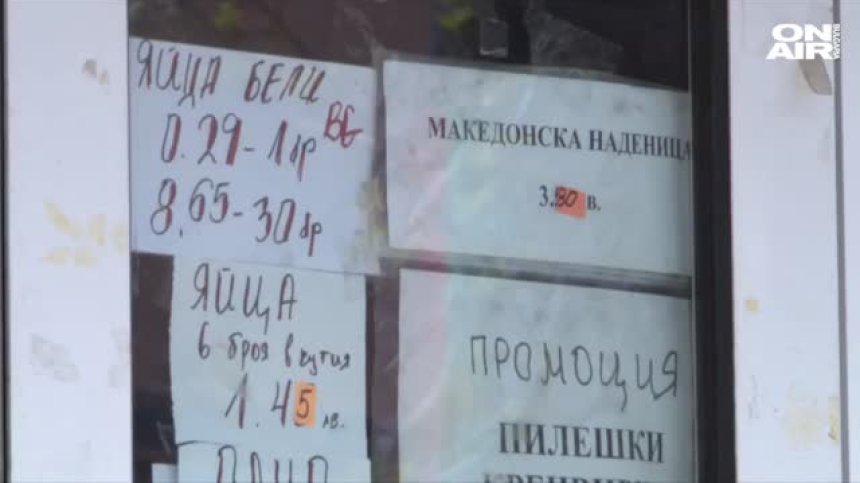 ON
AIR
BULGARIA
ЯЙЦА БЕЛИ
BG
0.29-1бр
8.65-30бр
МАКЕДОНСКА НАДЕНИЦА
3.80 в.
ЯЙЦА
6 броя в кутия
1.45 лв.
ПРОМОЦИЯ
ПИЛЕШКИ